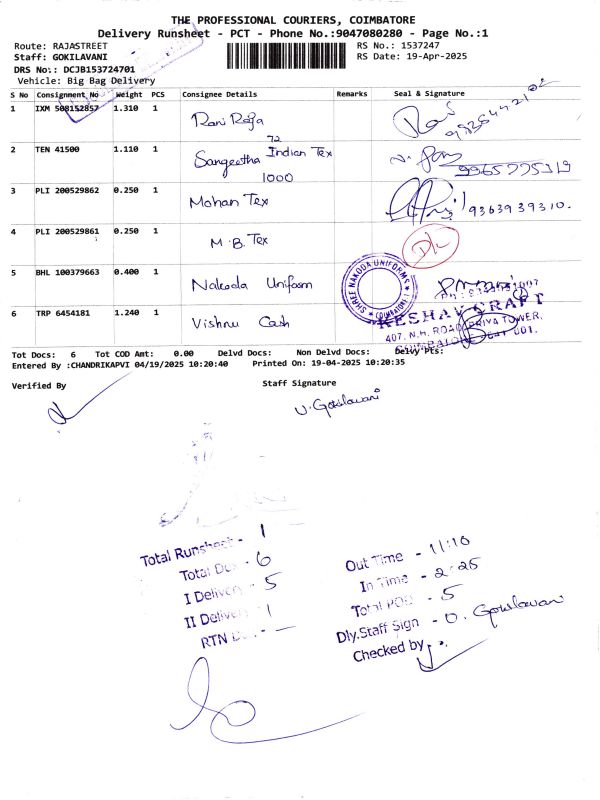 THE PROFESSIONAL COURIERS, COIMBATORE
Delivery Runsheet - PCT - Phone No.:9047080280 - Page No.:1
Route: RAJASTREET
RS No.: 1537247
Staff: GOKILAVANI
RS Date: 19-Apr-2025
DRS No.: DCJB153724701
Vehicle: Big Bag Delivery
S No Consignment No Weight PCS Consignee Details Remarks Seal & Signature
1 IXM 508152857 1.310 1 Rani Raja
2 TEN 41500 1.110 1 Sangeetha Indian Tex
72
1000
3 PLI 200529862 0.250 1 Mohan Tex 9363939310.
4 PLI 200529861 0.250 1 M.B. Tex D/L
5 BHL 100379663 0.400 1 Nakoda Uniform
SHREE NAKODA UNIFORMS
COIMBATORE
6 TRP 6454181 1.240 1 Vishnu Cash
KESHAV CRAFT
407, N.H. ROAD, PRIYA TOWER,
COIMBATORE - 641 001.
Tot Docs: 6 Tot COD Amt: 0.00 Delvd Docs: Non Delvd Docs: Delvy Pts:
Entered By :CHANDRIKAPVI 04/19/2025 10:20:40 Printed On: 19-04-2025 10:20:35
Verified By
Staff Signature
V. Gokilavani
Total Runsheet - 1
Total Doc - 6
I Delivery - 5
II Delivery - 1
RTN D -
Out Time - 11:10
In Time - 2:25
Total POD - 5
Dly.Staff Sign - V. Gokilavani
Checked by